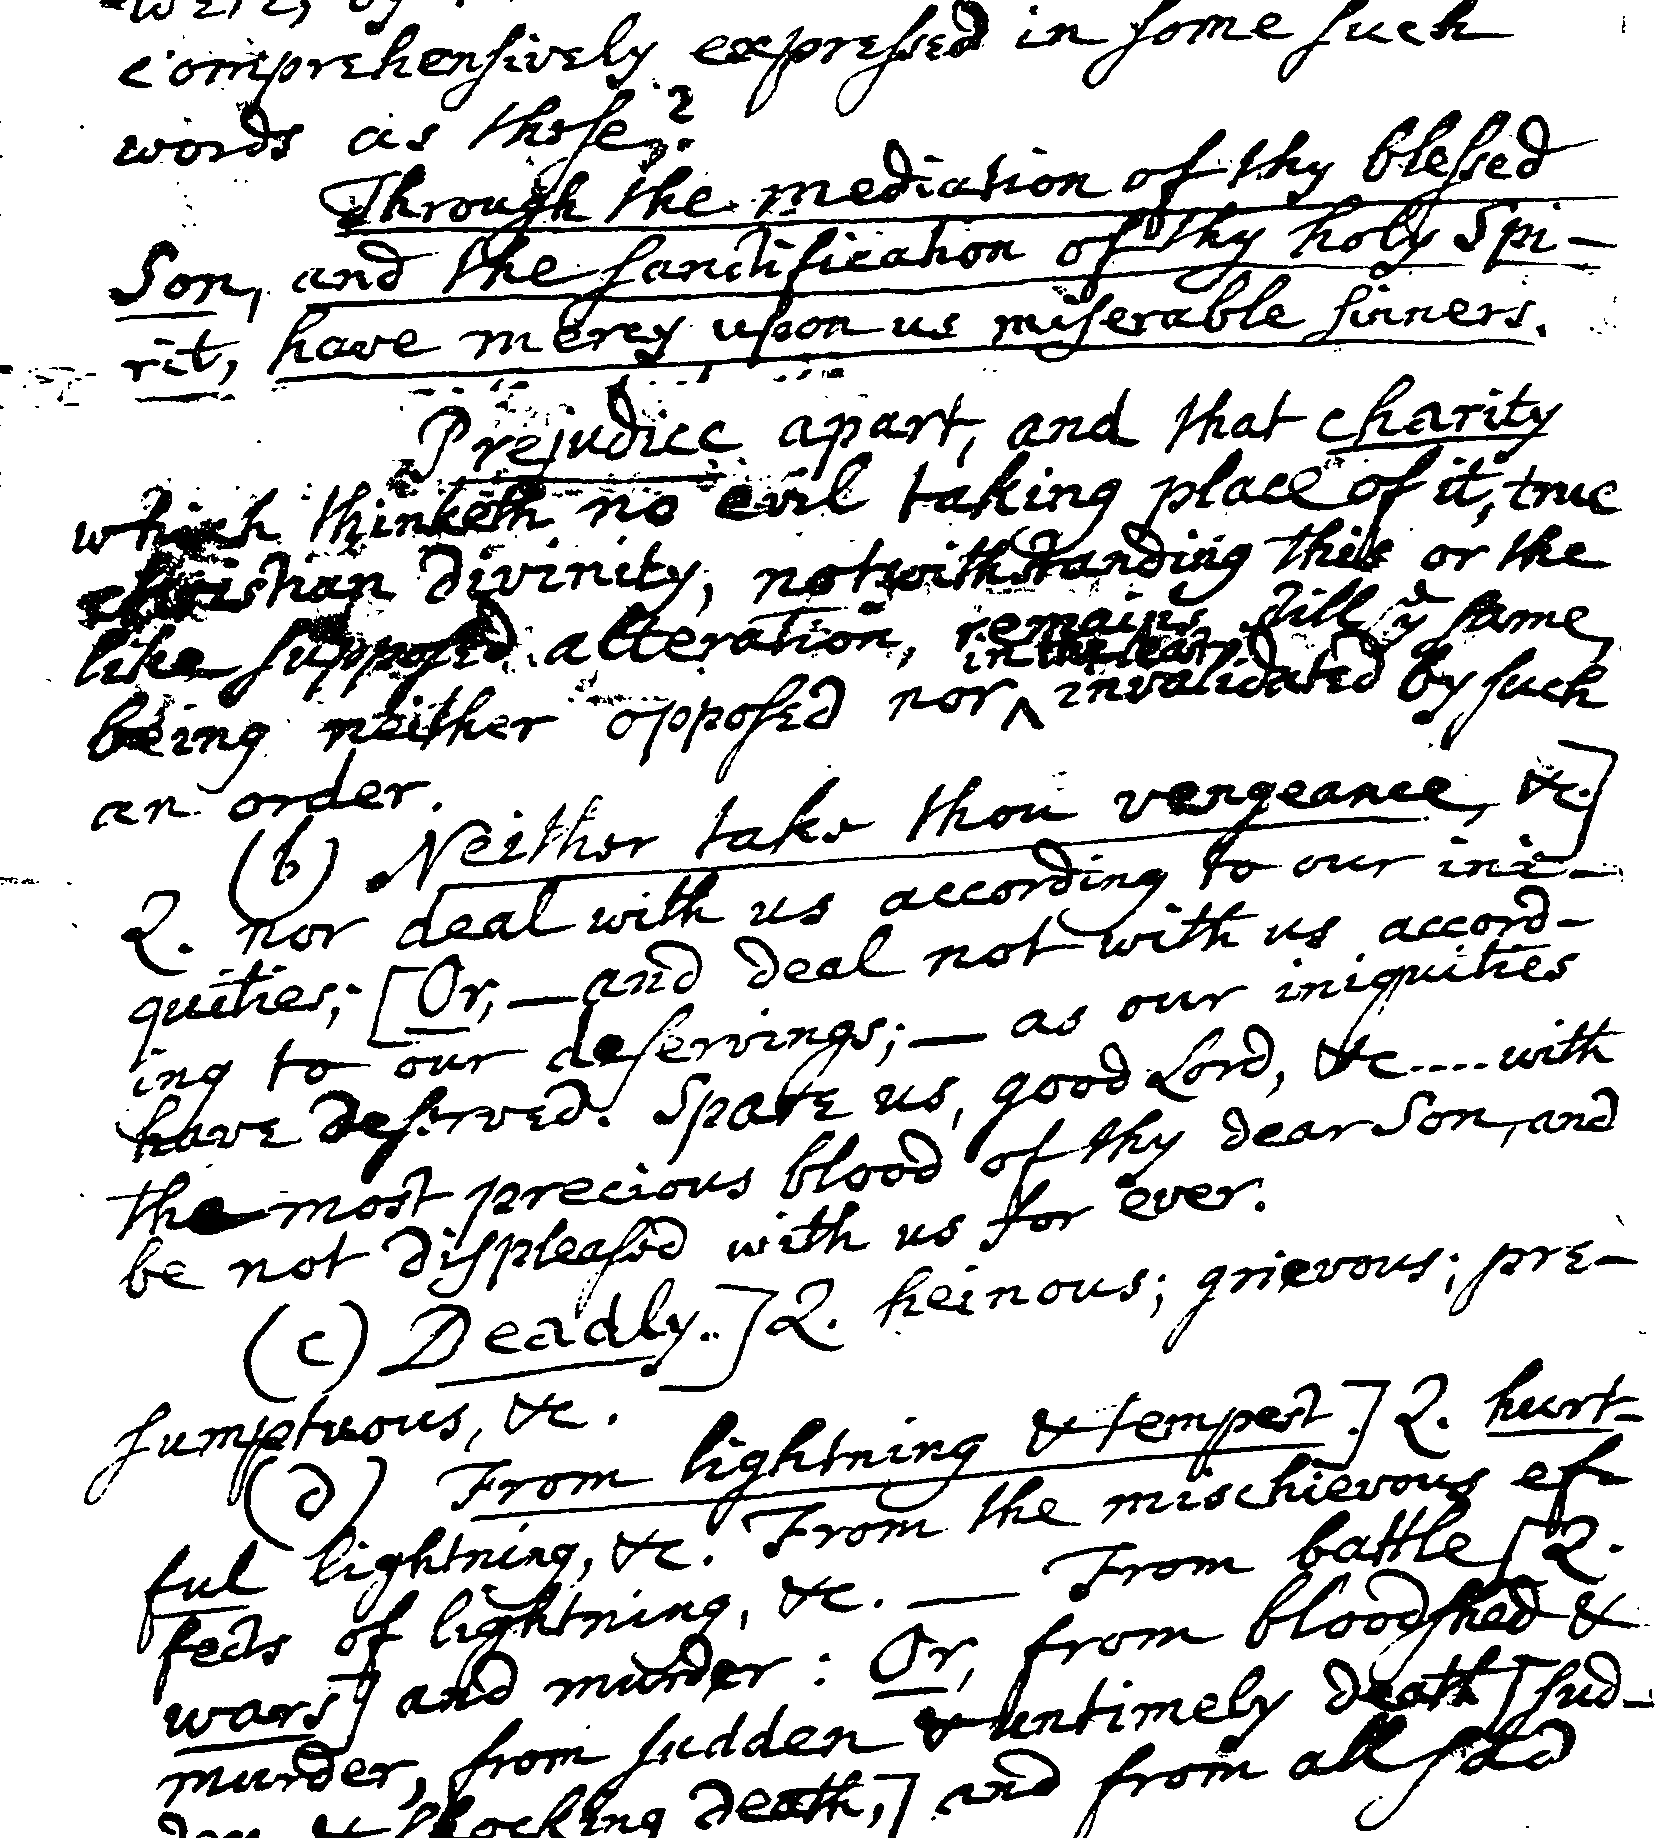 comprehensively expressed in some such
words as those?
Through the mediation of thy blessed
Son, and the sanctification of thy holy Spi-
rit, have mercy upon us miserable sinners.
Prejudice apart, and that charity
which thinketh no evil taking place of it, true
christian divinity, notwithstanding this or the
like supposed alteration, remains still yͤ same,
in the least
being neither opposed nor ^ invalidated by such
an order.
(b) Neither take thou vengeance, &c.]
Q. nor deal with us according to our ini-
quities; [Or, — and deal not with us accord-
ing to our deservings; — as our iniquities
have deserved. Spare us, good Lord, &c .... with
the most precious blood of thy dear Son, and
be not displeased with us for ever.
(c) Deadly..] Q. heinous; grievous; pre-
sumptuous, &c.
(d) From lightning & tempest.] Q. hurt-
ful lightning, &c. From the mischievous ef-
fects of lightning, &c. — From battle [Q.
wars] and murder: Or, from bloodshed &
murder, from sudden & untimely death [sud-
den & shocking death,] and from all sad